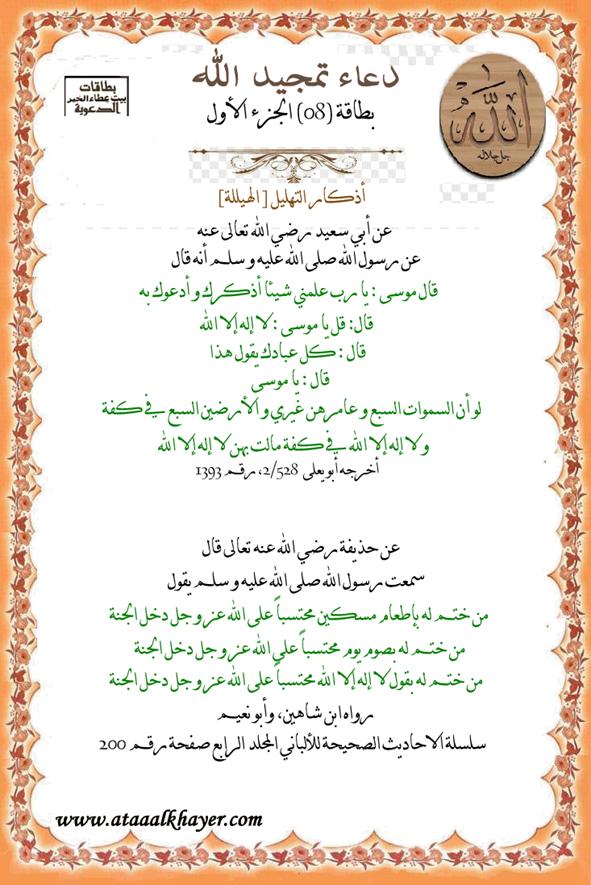 دعاء تمجيد الله
بطاقة (08) الجزء الأول
بطاقات
بيت عطاء الخير
الدعوية
الله
جل جلاله
أذكار التهليل [ الهيللة]
عن أبي سعيد رضي الله تعالى عنه
عن رسول الله صلى الله عليه و سلم أنه قال
قال موسى : يا رب علمني شيئا أذكرك و أدعوك به
قال: قل يا موسى : لا إله إلا الله
قال : كل عبادك يقول هذا
قال : يا موسى
لو أن السموات السبع و عامرهن غيري و الأرضين السبع في كفة
و لا إله إلا الله في كفة مالت بهن لا إله إلا الله
أخرجه أبو يعلى 2/528، رقم 1393
عن حذيفة رضي الله عنه تعالى قال
سمعت رسول الله صلى الله عليه و سلم يقول
من ختم له بإطعام مسكين محتسباً على الله عز و جل دخل الجنة
من ختم له بصوم يوم محتسباً على الله عز و جل دخل الجنة
من ختم له بقول لا إله إلا الله محتسباً على الله عز و جل دخل الجنة
رواه ابن شاهين، وأبو نعيم
سلسلة الاحاديث الصحيحة للألباني المجلد الرابع صفحة رقم 200
www.ataaalkhayer.com